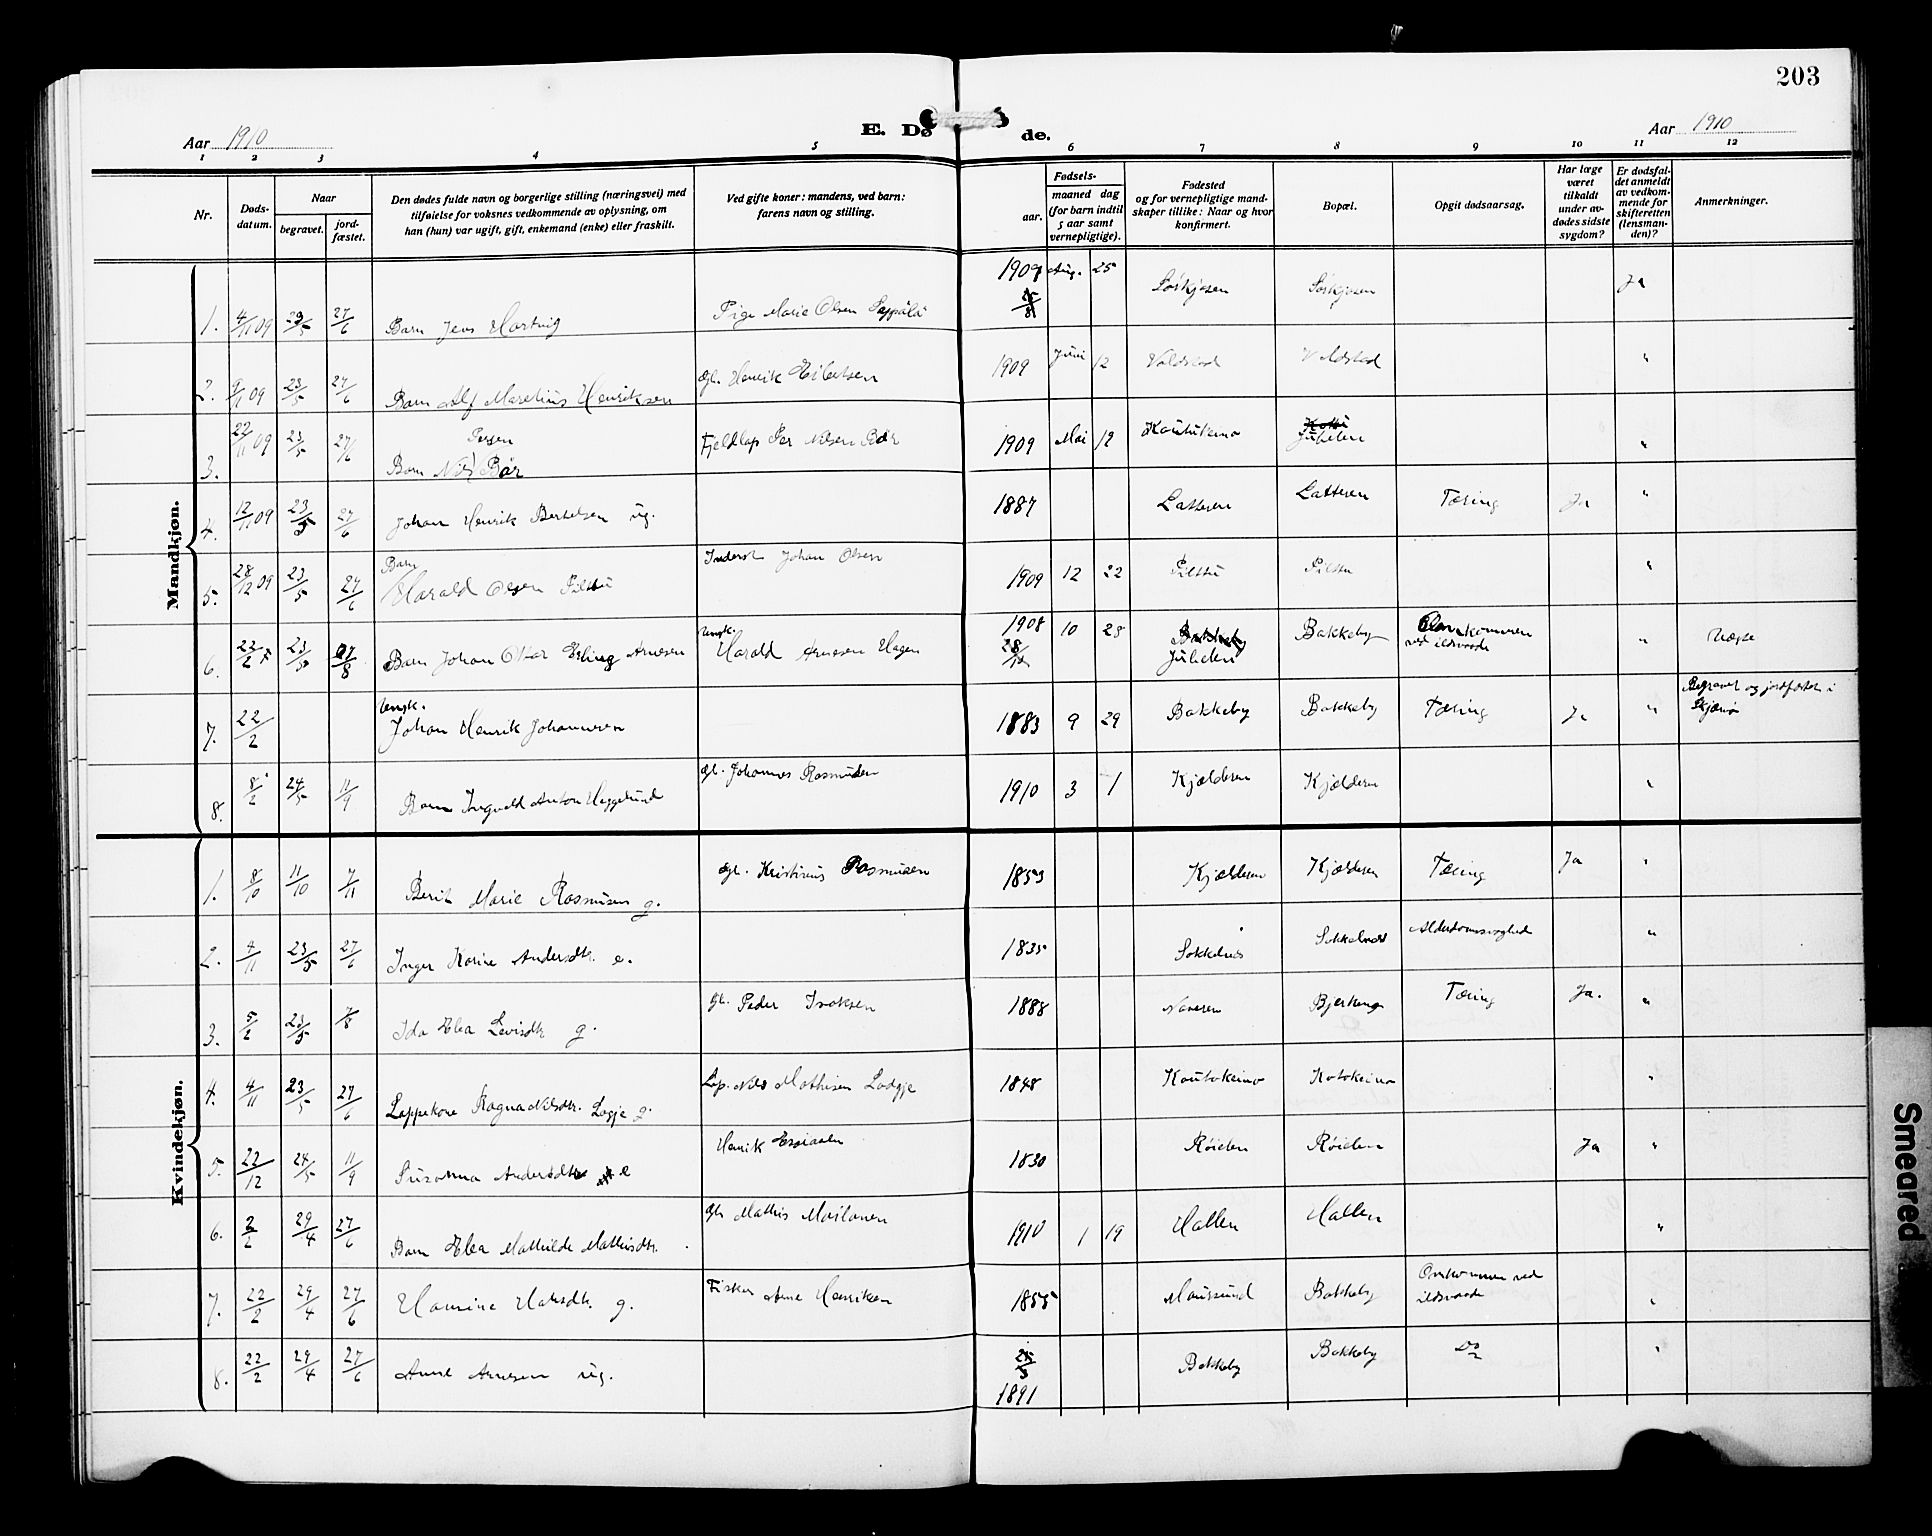 203
Aar 1910
E. Dø de.
Aar 1910
1 2 3 4 5 6 7 8 9 10 11 12
Nr.
Døds-
datum.
Naar
begravet.
jord-
fæstet.
Den dødes fulde navn og borgerlige stilling (næringsvei) med
tilføielse for voksnes vedkommende av oplysning, om
han (hun) var ugift, gift, enkemand (enke) eller fraskilt.
Ved gifte koner: mandens, ved barn:
farens navn og stilling.
Fødsels-
aar.
maaned dag
(for barn indtil
5 aar samt
vernepligtige).
Fødested
og for vernepligtige mand-
skaper tillike: Naar og hvor
konfirmert.
Bopæl.
Opgit dødsaarsag.
Har læge
været
tilkaldt
under av-
dødes sidste
sygdom?
Er dødsfal-
det anmeldt
av vedkom-
mende for
skifteretten
(lensman-
den)?
Anmerkninger.
Mandkjøn.
1. 4/11 09 29/5 27/6 Barn Jens Hartvig Pige Marie Olsen 1909 Aug. 25 Sørkjosen Sørkjosen Ja
2. 9/11 09 23/5 27/6 Barn Alf Maretius Henriksen gl. Henrik 1909 Juni 12 Valdstad Valdstad "
3. 22/11 09 23/5 27/6 Barn Nils Persen Bær Fjeldlap Per Nilsen Bær 1909 Mai 12 Koutukeino Jubelen "
4. 12/11 09 23/5 27/6 Johan Henrik Bertelsen ug. 1887 Latteren Latteren Tæring Ja "
5. 28/12 09 23/5 27/6 Barn Harald Olsen Pilttu Inderst Johan Olsen 1909 12 22 Pilttu Pilttu "
6. 22/2 23/5 27/8 Barn Johan Oskar Erling Arnesen Ungk. Harald Arnesen Hagen 1908 28/10 10 28 Bakkeby Jubelen Bakkeby Omkommen ved ildsvaade "
7. 22/2 Ungk. Johan Henrik Johannesen 1883 9 29 Bakkeby Bakkeby Tæring Ja " Begravet og jordfæstet i Skjærvø
8. 8/2 24/5 11/9 Barn Ingvald Anton Heggelund gl. Johannes Rasmussen 1910 3 1 Kjælderen Kjælderen "
Kvindekjøn.
1. 8/10 11/10 7/11 Berit Marie Rasmusen g. gl. Kristinus Rasmusen 1853 Kjælderen Kjælderen Tæring Ja "
2. 4/11 23/5 27/6 Inger Karine Andersdtr. e. 1835 Sokkelnes Sokkelnes Alderdomssvaghed "
3. 5/2 23/5 7/8 Ida Elea Levisdtr g. gl. Peder Isaksen 1888 Navaren Bjerkeng Tæring Ja. "
4. 4/11 23/5 27/6 Lappekone Ragna Nilsdtr. Logje g. Lap. Nils Mathisen Lodgje 1848 Koutokeino Kotokeino "
5. 22/12 24/5 11/9 Susanna Andersdtr e Henrik Esaiasen 1830 Røielen Røielen Ja "
6. 2/2 29/4 27/6 Barn Elea Mathilde Mathisdtr. gl. Mathis Mailanen 1910 1 19 Hallen Hallen "
7. 22/2 29/4 27/6 Hansine Hansdtr. g. Fisker Arne Henriksen 1855 Maursund Bakkeby Omkommen ved ildsvaade "
8. 22/2 29/4 27/6 Anne Arnesen ug. 1891 Bakkeby Bakkeby Do "
Smeared